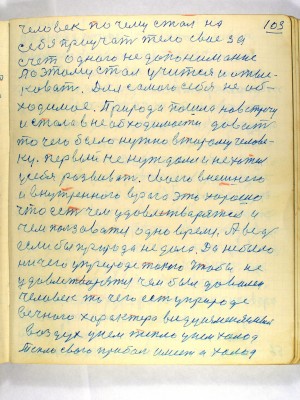 103
человек почему стал на
себя приучат тело свое за
счет одного недопонимание
поэтому стал учится и отвы-
коват. Для самого себя не об-
ходимое. Природа пошла навстречу
и стала в необходимости доват
то чего было нужно второму челове-
ку. первый не нуждался и не хотел
у себя розвиват. Своего внешнего
и внутренного врага это хорошо
что ест чем удовлетворятся и
чем ползоватся одно время. А вед
если бы природа не дала. Да не было
ничего у природе такого чтобы не
удовлетворяти чем был доволен
человек то чего ест у природе
вечного характера видуизменения
воздух у нем тепло у нем холод
тепло свого прибал имеет а холод